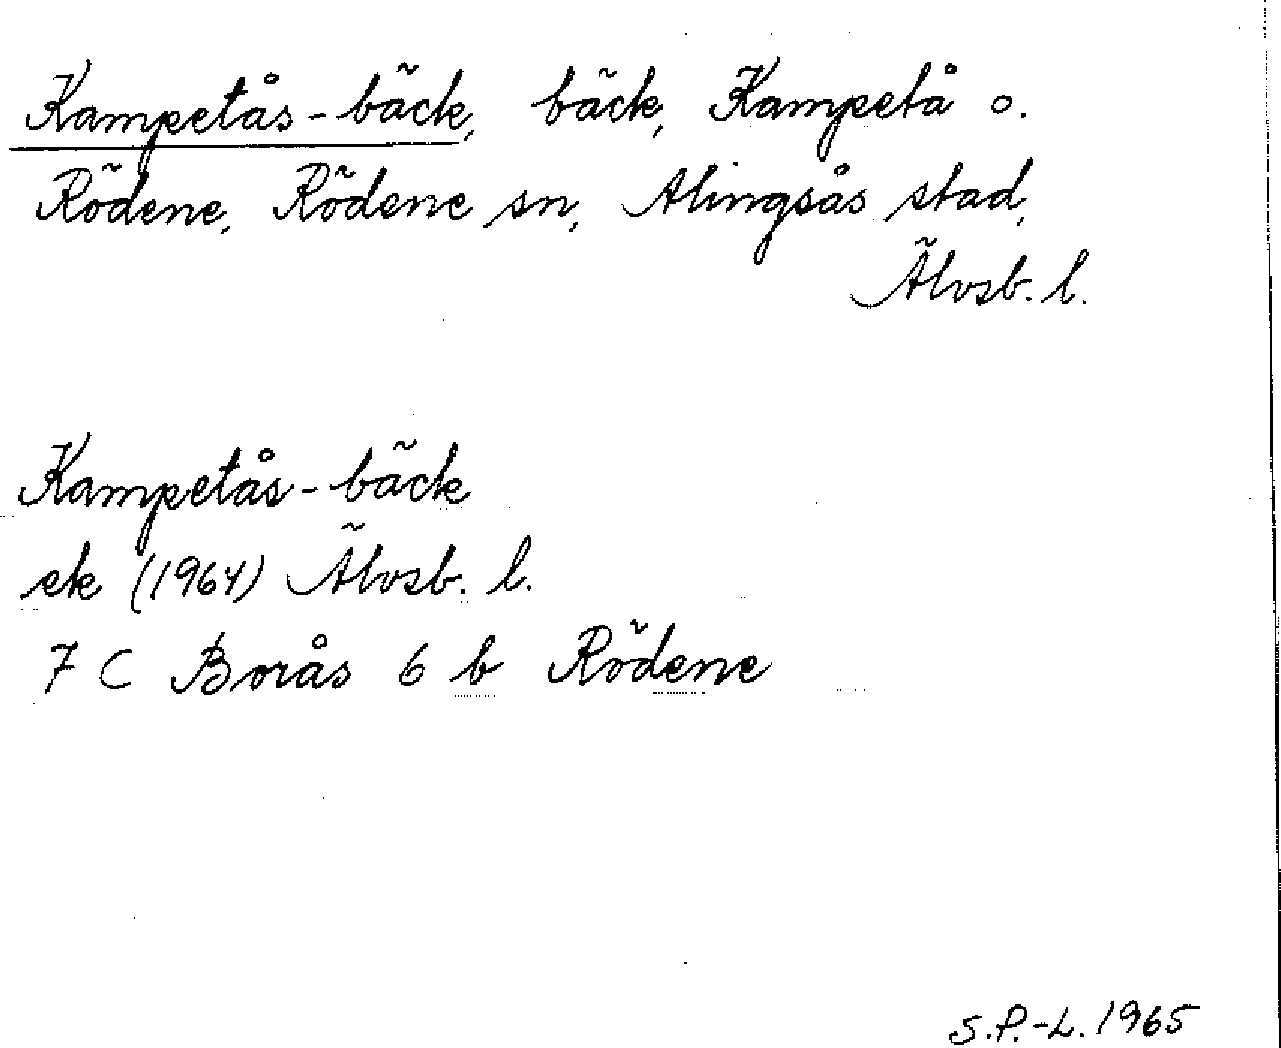 Kampetås-bäck, bäck, Kampetå o.
Rödene, Rödene sn, Alingsås stad,
Älvsb. l.
Kampetås-bäck
ek (1964) Älvsb. l.
7 C Borås 6 b Rödene
S.P.-L. 1965